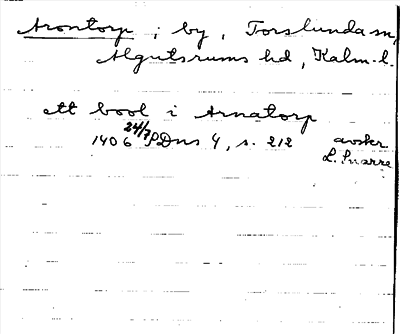 Arontorp ; by , Torslunda sn,
Algutsrums hd , Kalm. l.
ett bool i Arnatorp
1406 24/7 SDns 4 , s. 212 avskr.
L. Snarre